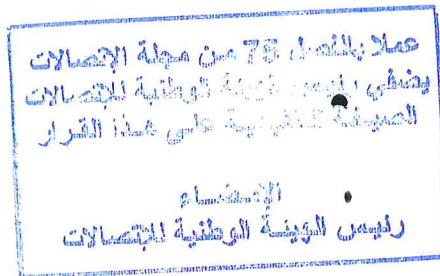 عملا بالفصل 78 من مجلة الإتصالات
يمضي رئيس الهيئة الوطنية للإتصالات
الصيغة التنفيذية على هذا القرار
الإمضاء
رئيس الهيئة الوطنية للإتصالات